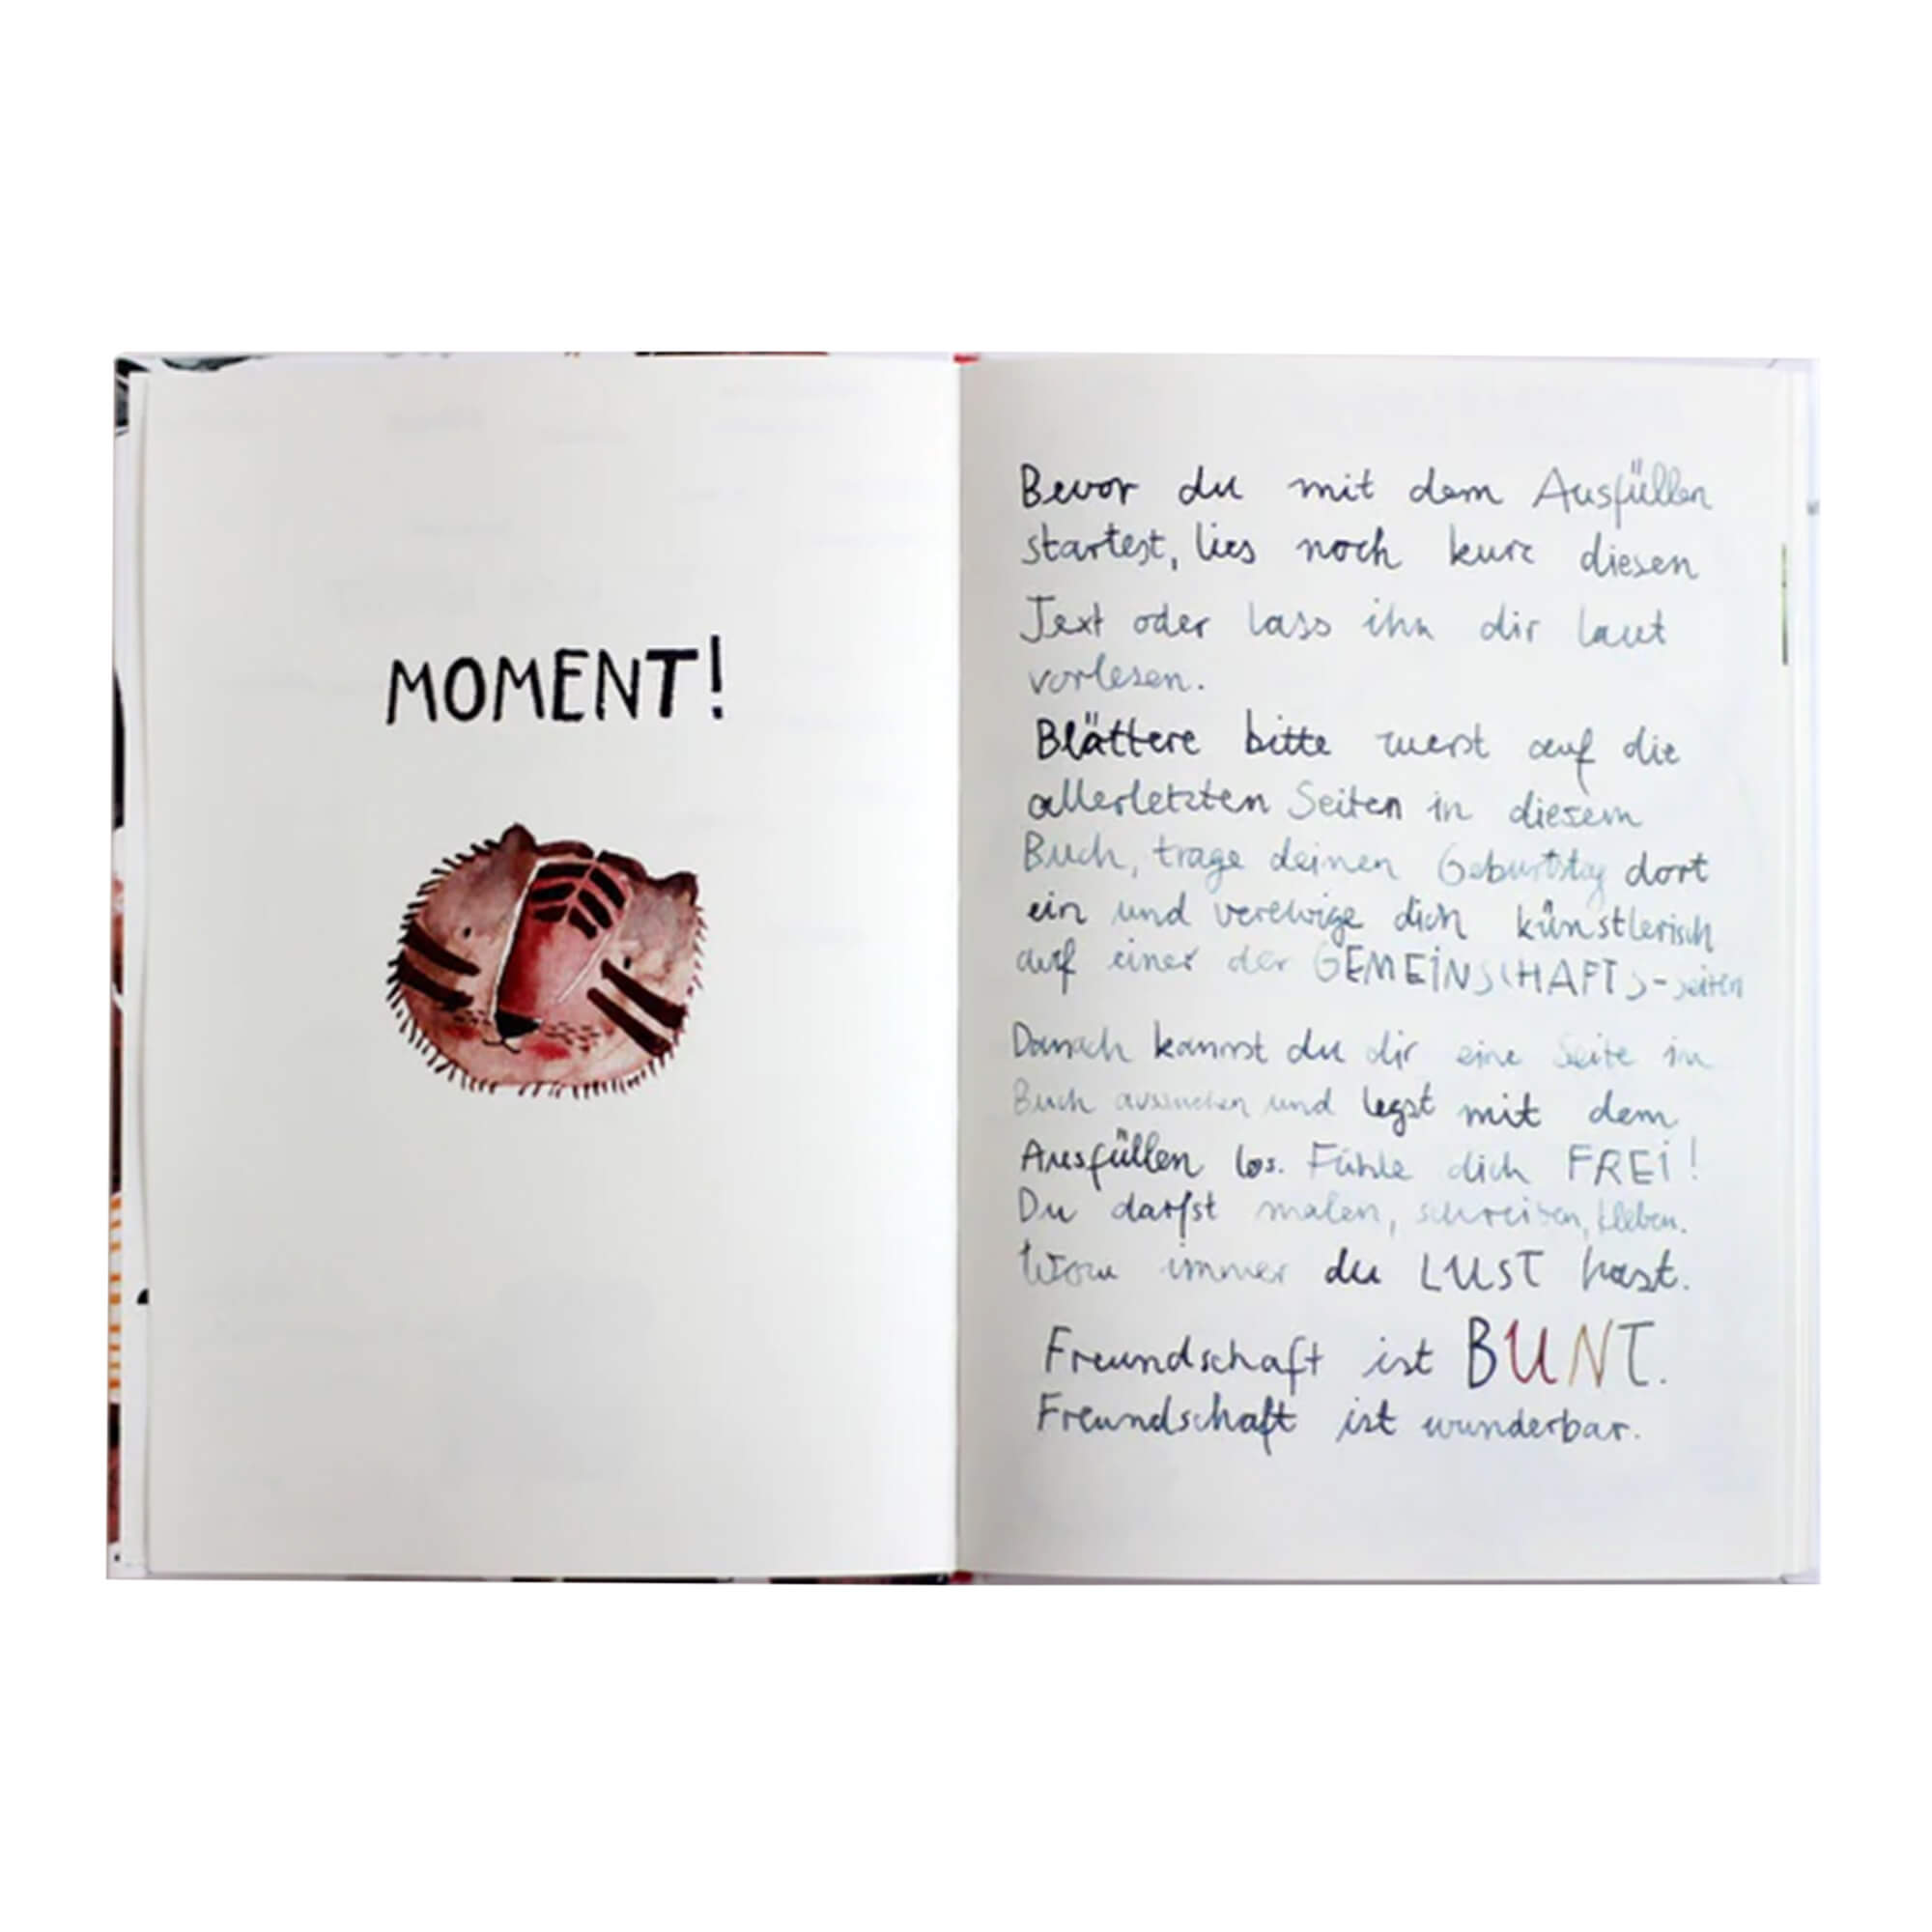 MOMENT!
Bevor du mit dem Ausfüllen
startest, lies noch kurz diesen
Text oder lass ihn dir laut
vorlesen.
Blättere bitte zuerst auf die
allerletzten Seiten in diesem
Buch, trage deinen Geburtstag dort
ein und verewige dich künstlerisch
auf einer der GEMEINSCHAFTS-seiten
Danach kannst du dir eine Seite im
Buch aussuchen und legst mit dem
Ausfüllen los. Fühle dich FREI!
Du darfst malen, schreiben, kleben.
Wozu immer du LUST hast.
Freundschaft ist BUNT.
Freundschaft ist wunderbar.